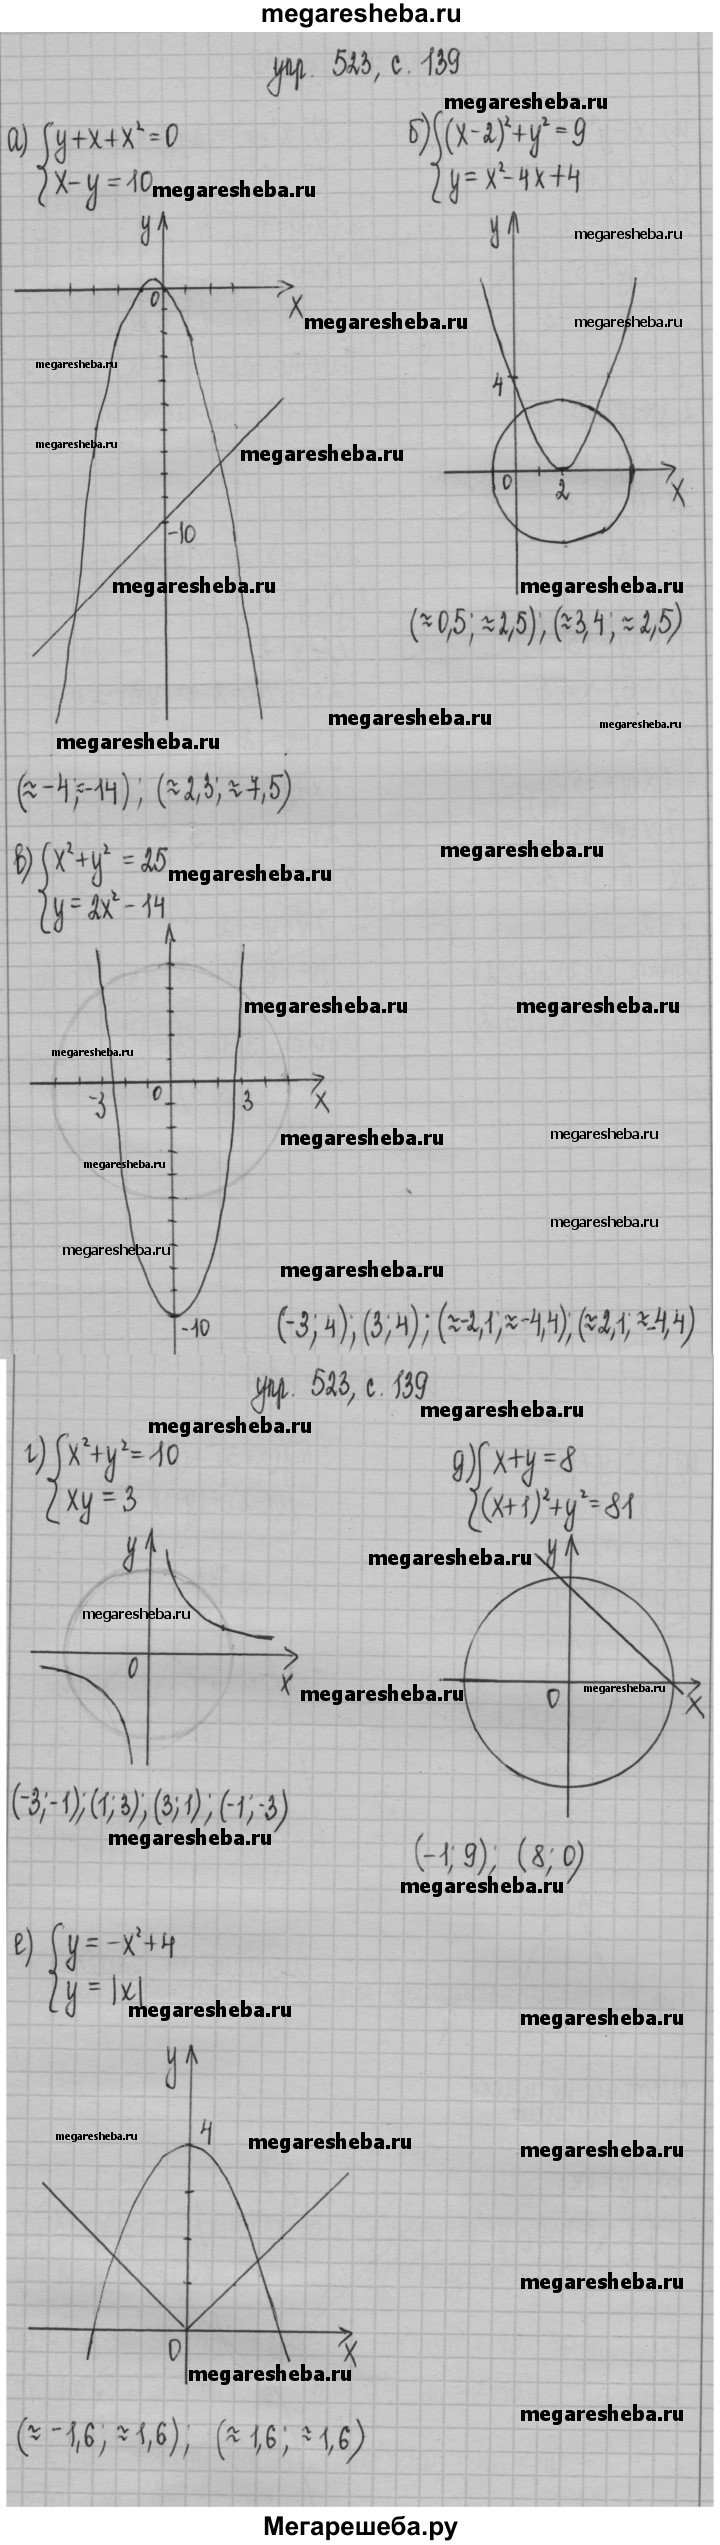 megaresheba.ru
упр. 523, с. 139
megaresheba.ru
а) { y + x + x² = 0
x - y = 10
megaresheba.ru
б) { (x-2)² + y² = 9
y = x² - 4x + 4
y
0
x
-10
megaresheba.ru
megaresheba.ru
megaresheba.ru
megaresheba.ru
megaresheba.ru
y
4
0
2
x
megaresheba.ru
megaresheba.ru
megaresheba.ru
(≈0,5; ≈2,5); (≈3,4; ≈2,5)
megaresheba.ru
megaresheba.ru
megaresheba.ru
(≈-4; ≈-14); (≈2,3; ≈7,5)
в) { x² + y² = 25
y = 2x² - 14
megaresheba.ru
megaresheba.ru
-3
0
3
x
-10
megaresheba.ru
megaresheba.ru
megaresheba.ru
megaresheba.ru
megaresheba.ru
megaresheba.ru
megaresheba.ru
megaresheba.ru
megaresheba.ru
(-3; 4); (3; 4); (≈-2,1; ≈-4,4); (≈2,1; ≈-4,4)
упр. 523, с. 139
megaresheba.ru
megaresheba.ru
г) { x² + y² = 10
xy = 3
д) { x + y = 8
(x+1)² + y² = 81
y
0
x
megaresheba.ru
megaresheba.ru
megaresheba.ru
y
0
x
megaresheba.ru
(-3; -1); (1; 3); (3; 1); (-1; -3)
megaresheba.ru
(-1; 9); (8; 0)
megaresheba.ru
е) { y = -x² + 4
y = |x|
megaresheba.ru
megaresheba.ru
y
4
0
x
megaresheba.ru
megaresheba.ru
megaresheba.ru
megaresheba.ru
megaresheba.ru
megaresheba.ru
(≈-1,6; ≈1,6); (≈1,6; ≈1,6)
Мегарешеба.ру